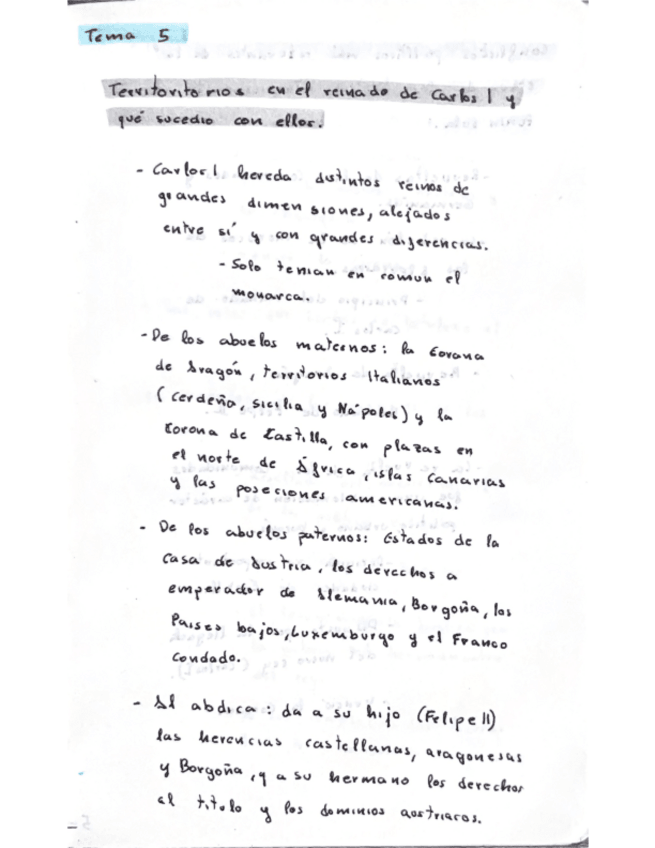 Tema 5
Territoritorios en el reinado de Carlos I y
qué sucedio con ellos.
- Carlos I hereda distintos reinos de
grandes dimensiones, alejados
entre sí y con grandes diferencias.
- Solo tenian en comun el
monarca.
- De los abuelos maternos: la Corona
de Aragón, territorios Italianos
(Cerdeña, Sicilia y Nápoles) y la
Corona de Castilla, con plazas en
el norte de África, islas Canarias
y las poseciones americanas.
- De los abuelos paternos: Estados de la
casa de Austria, los derechos a
emperador de Alemania, Borgoña, los
Paises bajos, Luxemburgo y el Franco
condado.
- Al abdica: da a su hijo (Felipe II)
las herencias castellanas, aragonesas
y Borgoña, y a su hermano los derechos
al titulo y los dominios aostriacos.